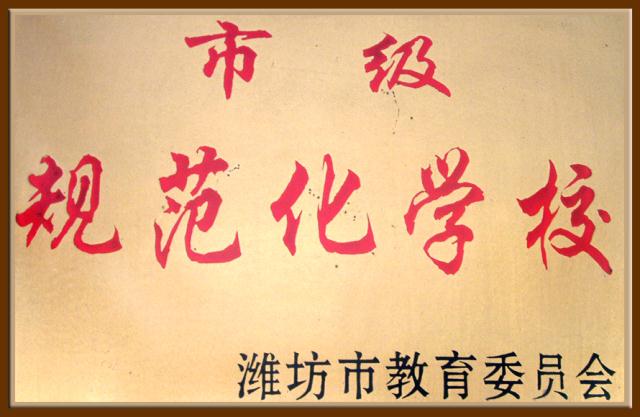 市级
规范化学校
潍坊市教育委员会